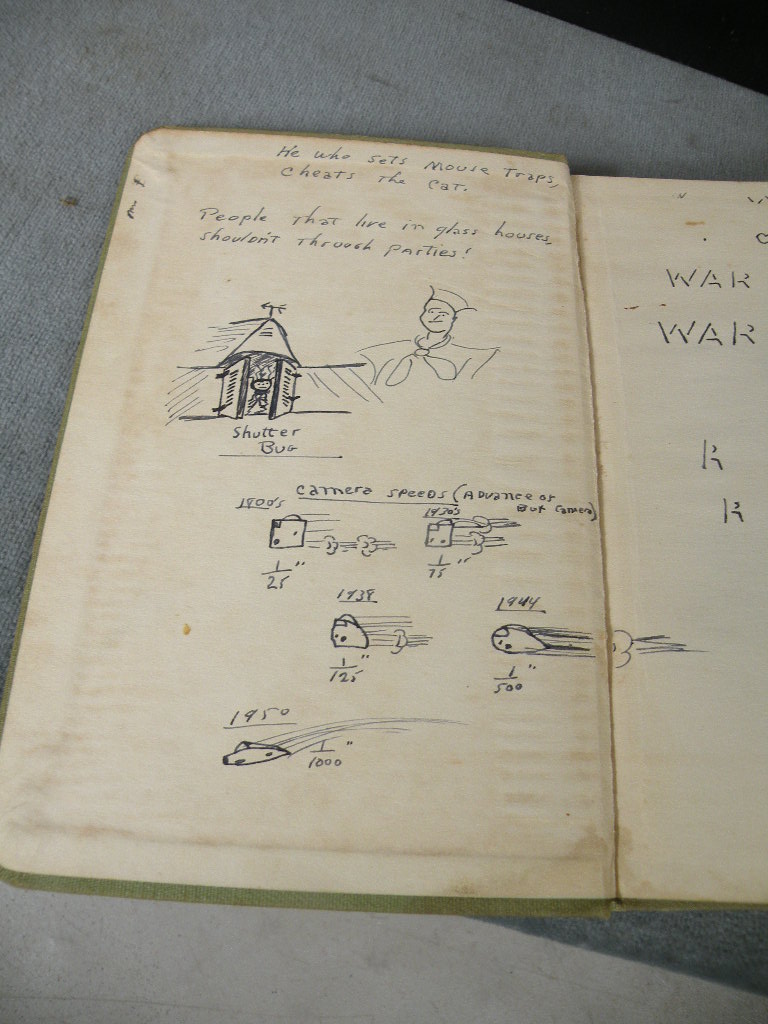 He who sets Mouse Traps,
Cheats the Cat.
People that live in glass houses,
shouldn't through parties!
Shutter
Bug
camera speeds (Advance of
Box Camera)
1900's
1/25"
1920's
1/75"
1938
1/125"
1944
1/500"
1950
1/1000"
WAR
WAR